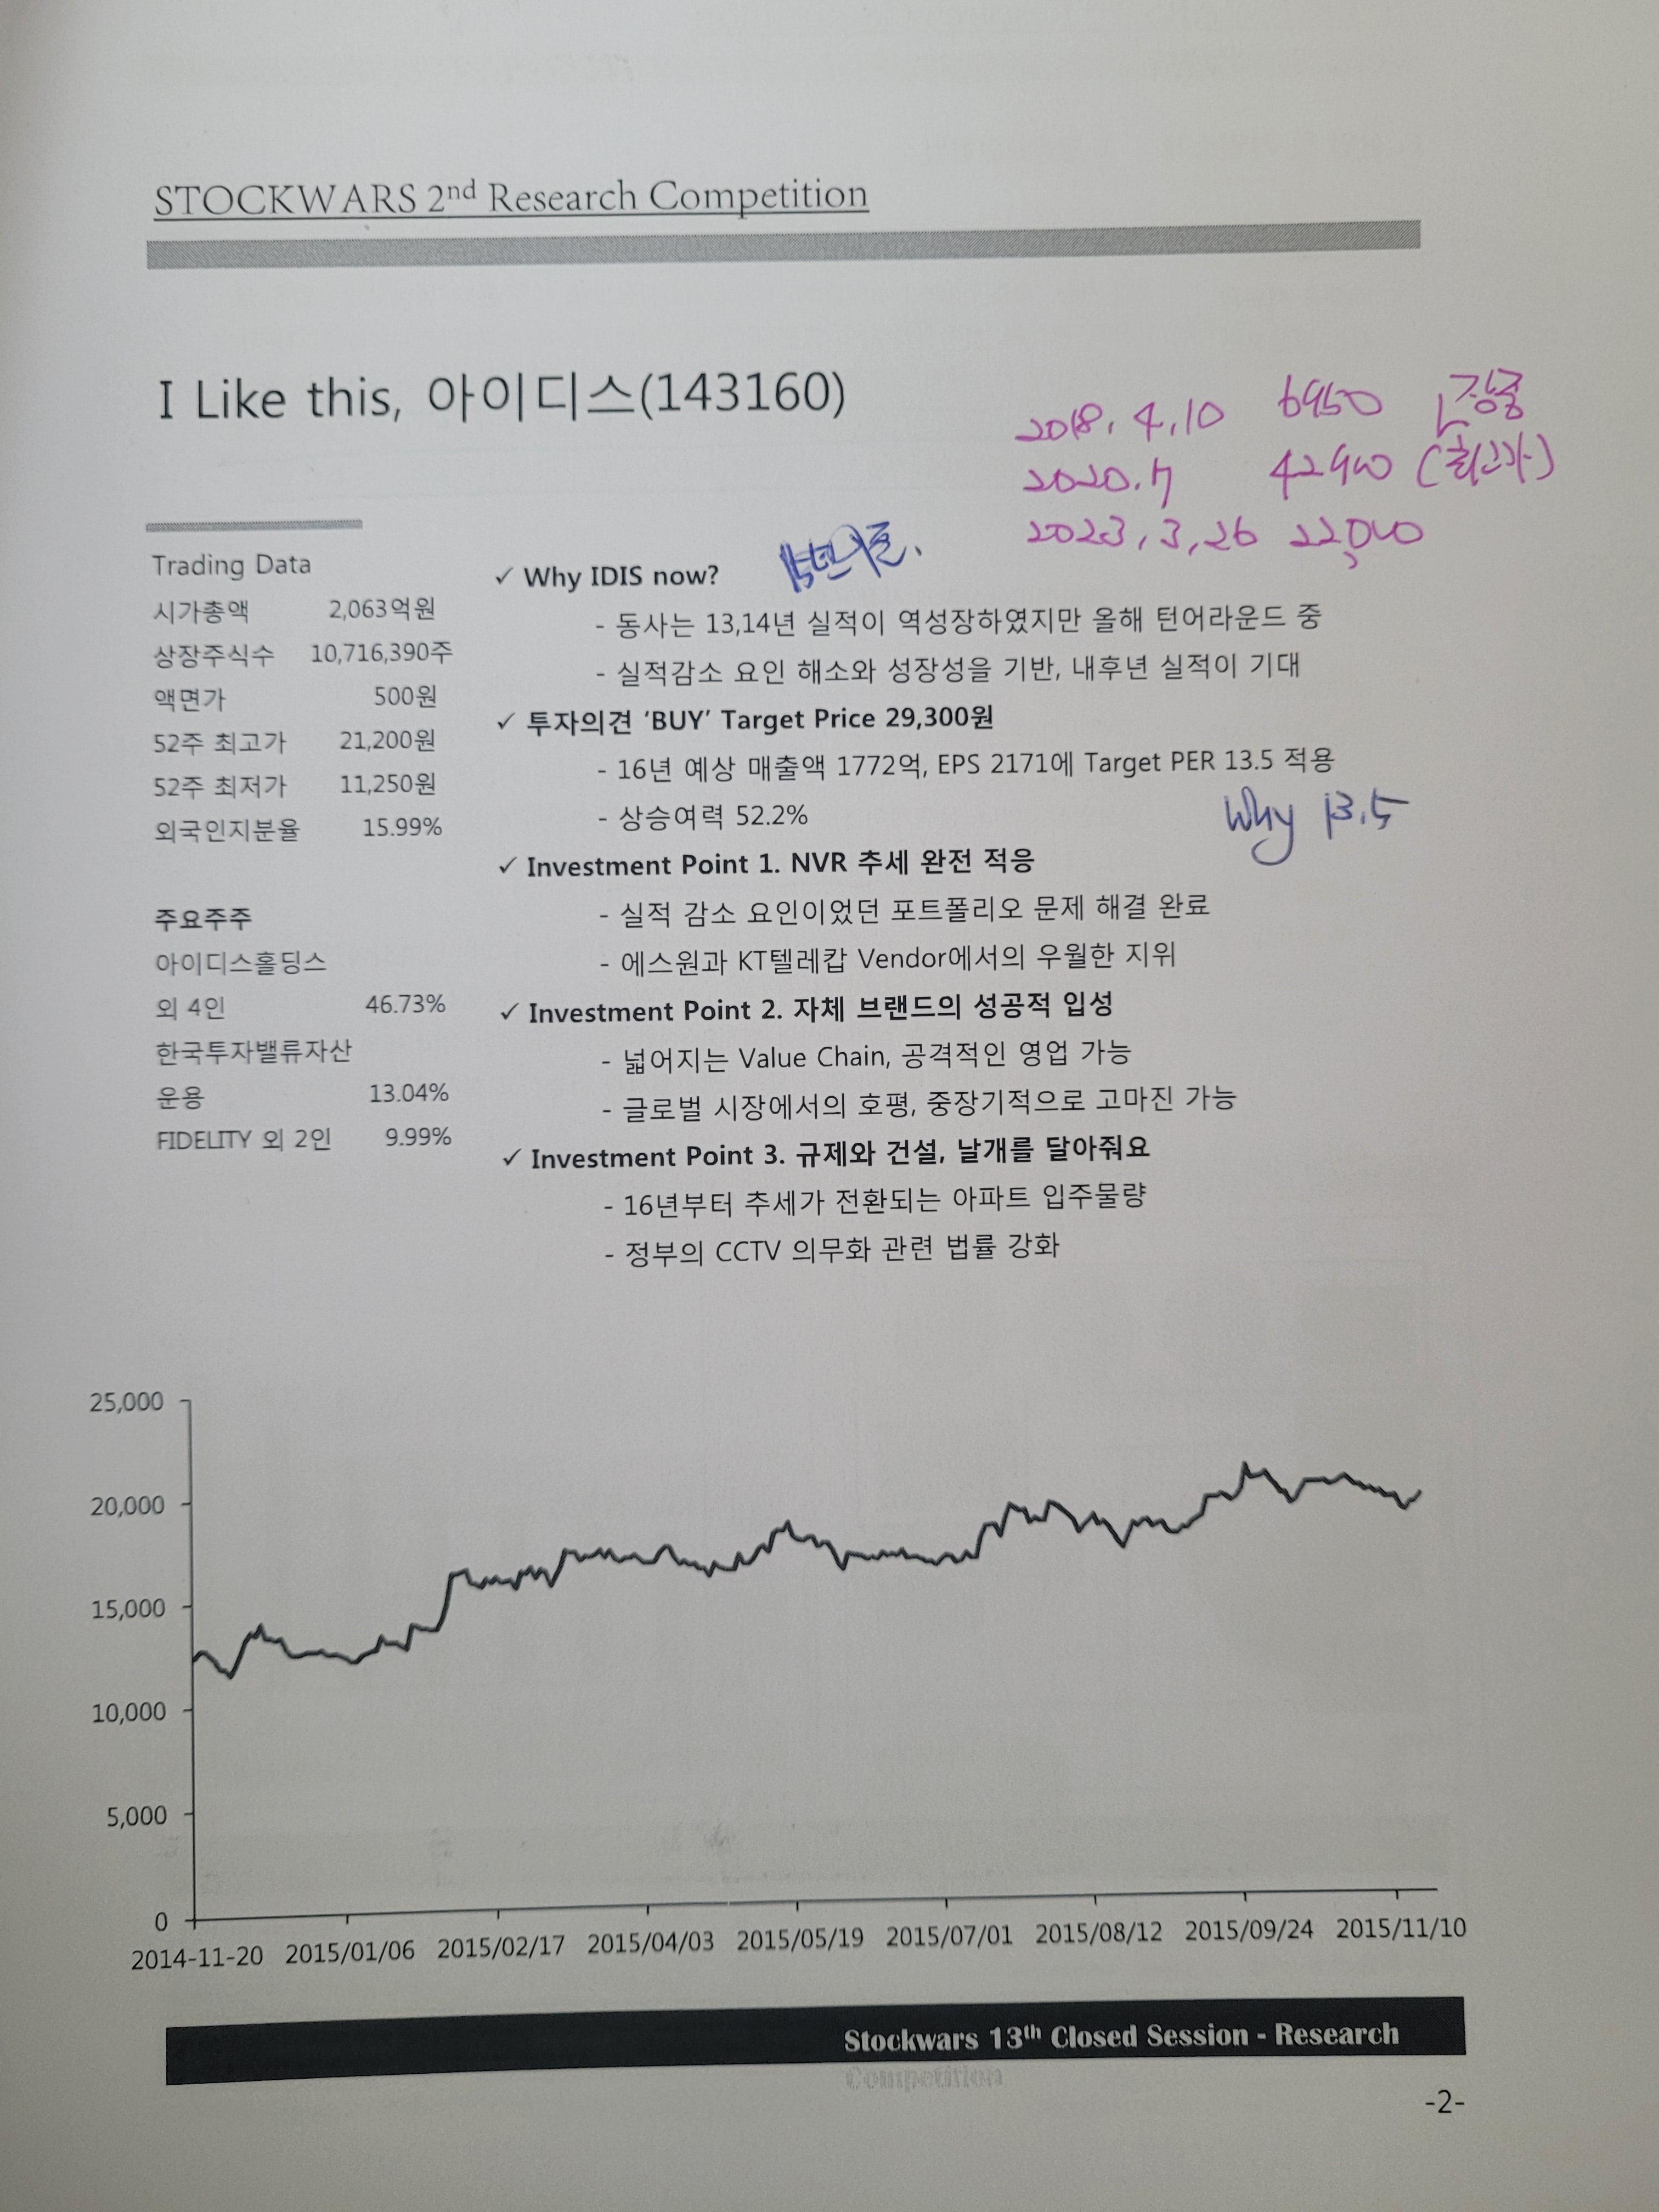 STOCKWARS 2nd Research Competition
I Like this, 아이디스(143160)
2018. 4. 10 6950 장중
2020. 7 42900 (최고가)
2023, 3, 26 22,000
Trading Data
시가총액 2,063억원
상장주식수 10,716,390주
액면가 500원
52주 최고가 21,200원
52주 최저가 11,250원
외국인지분율 15.99%
주요주주
아이디스홀딩스
외 4인 46.73%
한국투자밸류자산
운용 13.04%
FIDELITY 외 2인 9.99%
✓ Why IDIS now?
- 동사는 13,14년 실적이 역성장하였지만 올해 턴어라운드 중
- 실적감소 요인 해소와 성장성을 기반, 내후년 실적이 기대
✓ 투자의견 ‘BUY’ Target Price 29,300원
- 16년 예상 매출액 1772억, EPS 2171에 Target PER 13.5 적용
Why 13.5
- 상승여력 52.2%
✓ Investment Point 1. NVR 추세 완전 적응
- 실적 감소 요인이었던 포트폴리오 문제 해결 완료
- 에스원과 KT텔레캅 Vendor에서의 우월한 지위
✓ Investment Point 2. 자체 브랜드의 성공적 입성
- 넓어지는 Value Chain, 공격적인 영업 가능
- 글로벌 시장에서의 호평, 중장기적으로 고마진 가능
✓ Investment Point 3. 규제와 건설, 날개를 달아줘요
- 16년부터 추세가 전환되는 아파트 입주물량
- 정부의 CCTV 의무화 관련 법률 강화
25,000
20,000
15,000
10,000
5,000
0
2014-11-20 2015/01/06 2015/02/17 2015/04/03 2015/05/19 2015/07/01 2015/08/12 2015/09/24 2015/11/10
Stockwars 13th Closed Session - Research
Competition
-2-